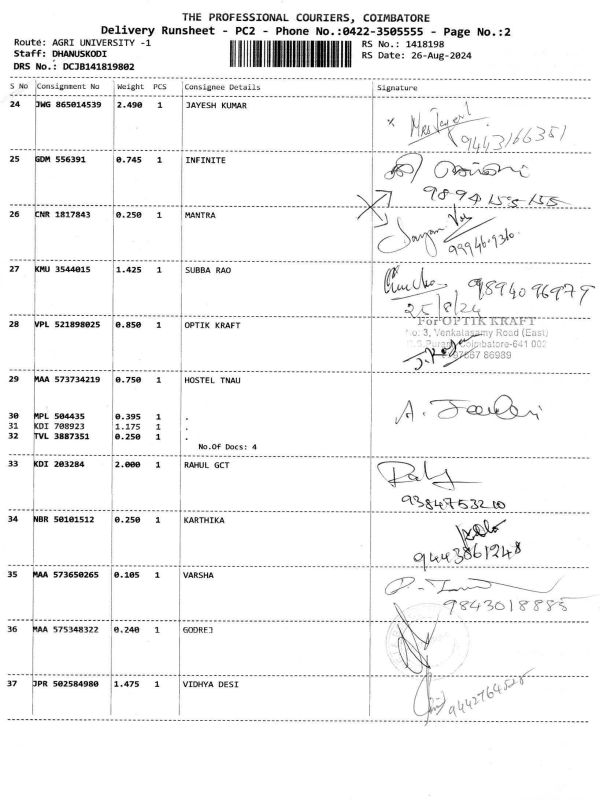 THE PROFESSIONAL COURIERS, COIMBATORE
Delivery Runsheet - PC2 - Phone No.:0422-3505555 - Page No.:2
Route: AGRI UNIVERSITY -1
RS No.: 1418198
Staff: DHANUSKODI
RS Date: 26-Aug-2024
DRS No.: DCJB141819802
S No Consignment No Weight PCS Consignee Details Signature
24 JWG 865014539 2.490 1 JAYESH KUMAR
x
9443166351
25 GDM 556391 0.745 1 INFINITE
9894 155 155
26 CNR 1817843 0.250 1 MANTRA
27 KMU 3544015 1.425 1 SUBBA RAO
9894096979
25/8/24
28 VPL 521898025 0.850 1 OPTIK KRAFT
For OPTIK KRAFT
No. 3, Venkatasamy Road (East)
Coimbatore-641 002
86989
29 MAA 573734219 0.750 1 HOSTEL TNAU
30 MPL 504435 0.395 1 .
31 KDI 708923 1.175 1 .
32 TVL 3887351 0.250 1 .
No.Of Docs: 4
33 KDI 203284 2.000 1 RAHUL GCT
9384753210
34 NBR 50101512 0.250 1 KARTHIKA
9443861248
35 MAA 573650265 0.105 1 VARSHA
9843018885
36 MAA 575348322 0.240 1 GODREJ
37 JPR 502584980 1.475 1 VIDHYA DESI